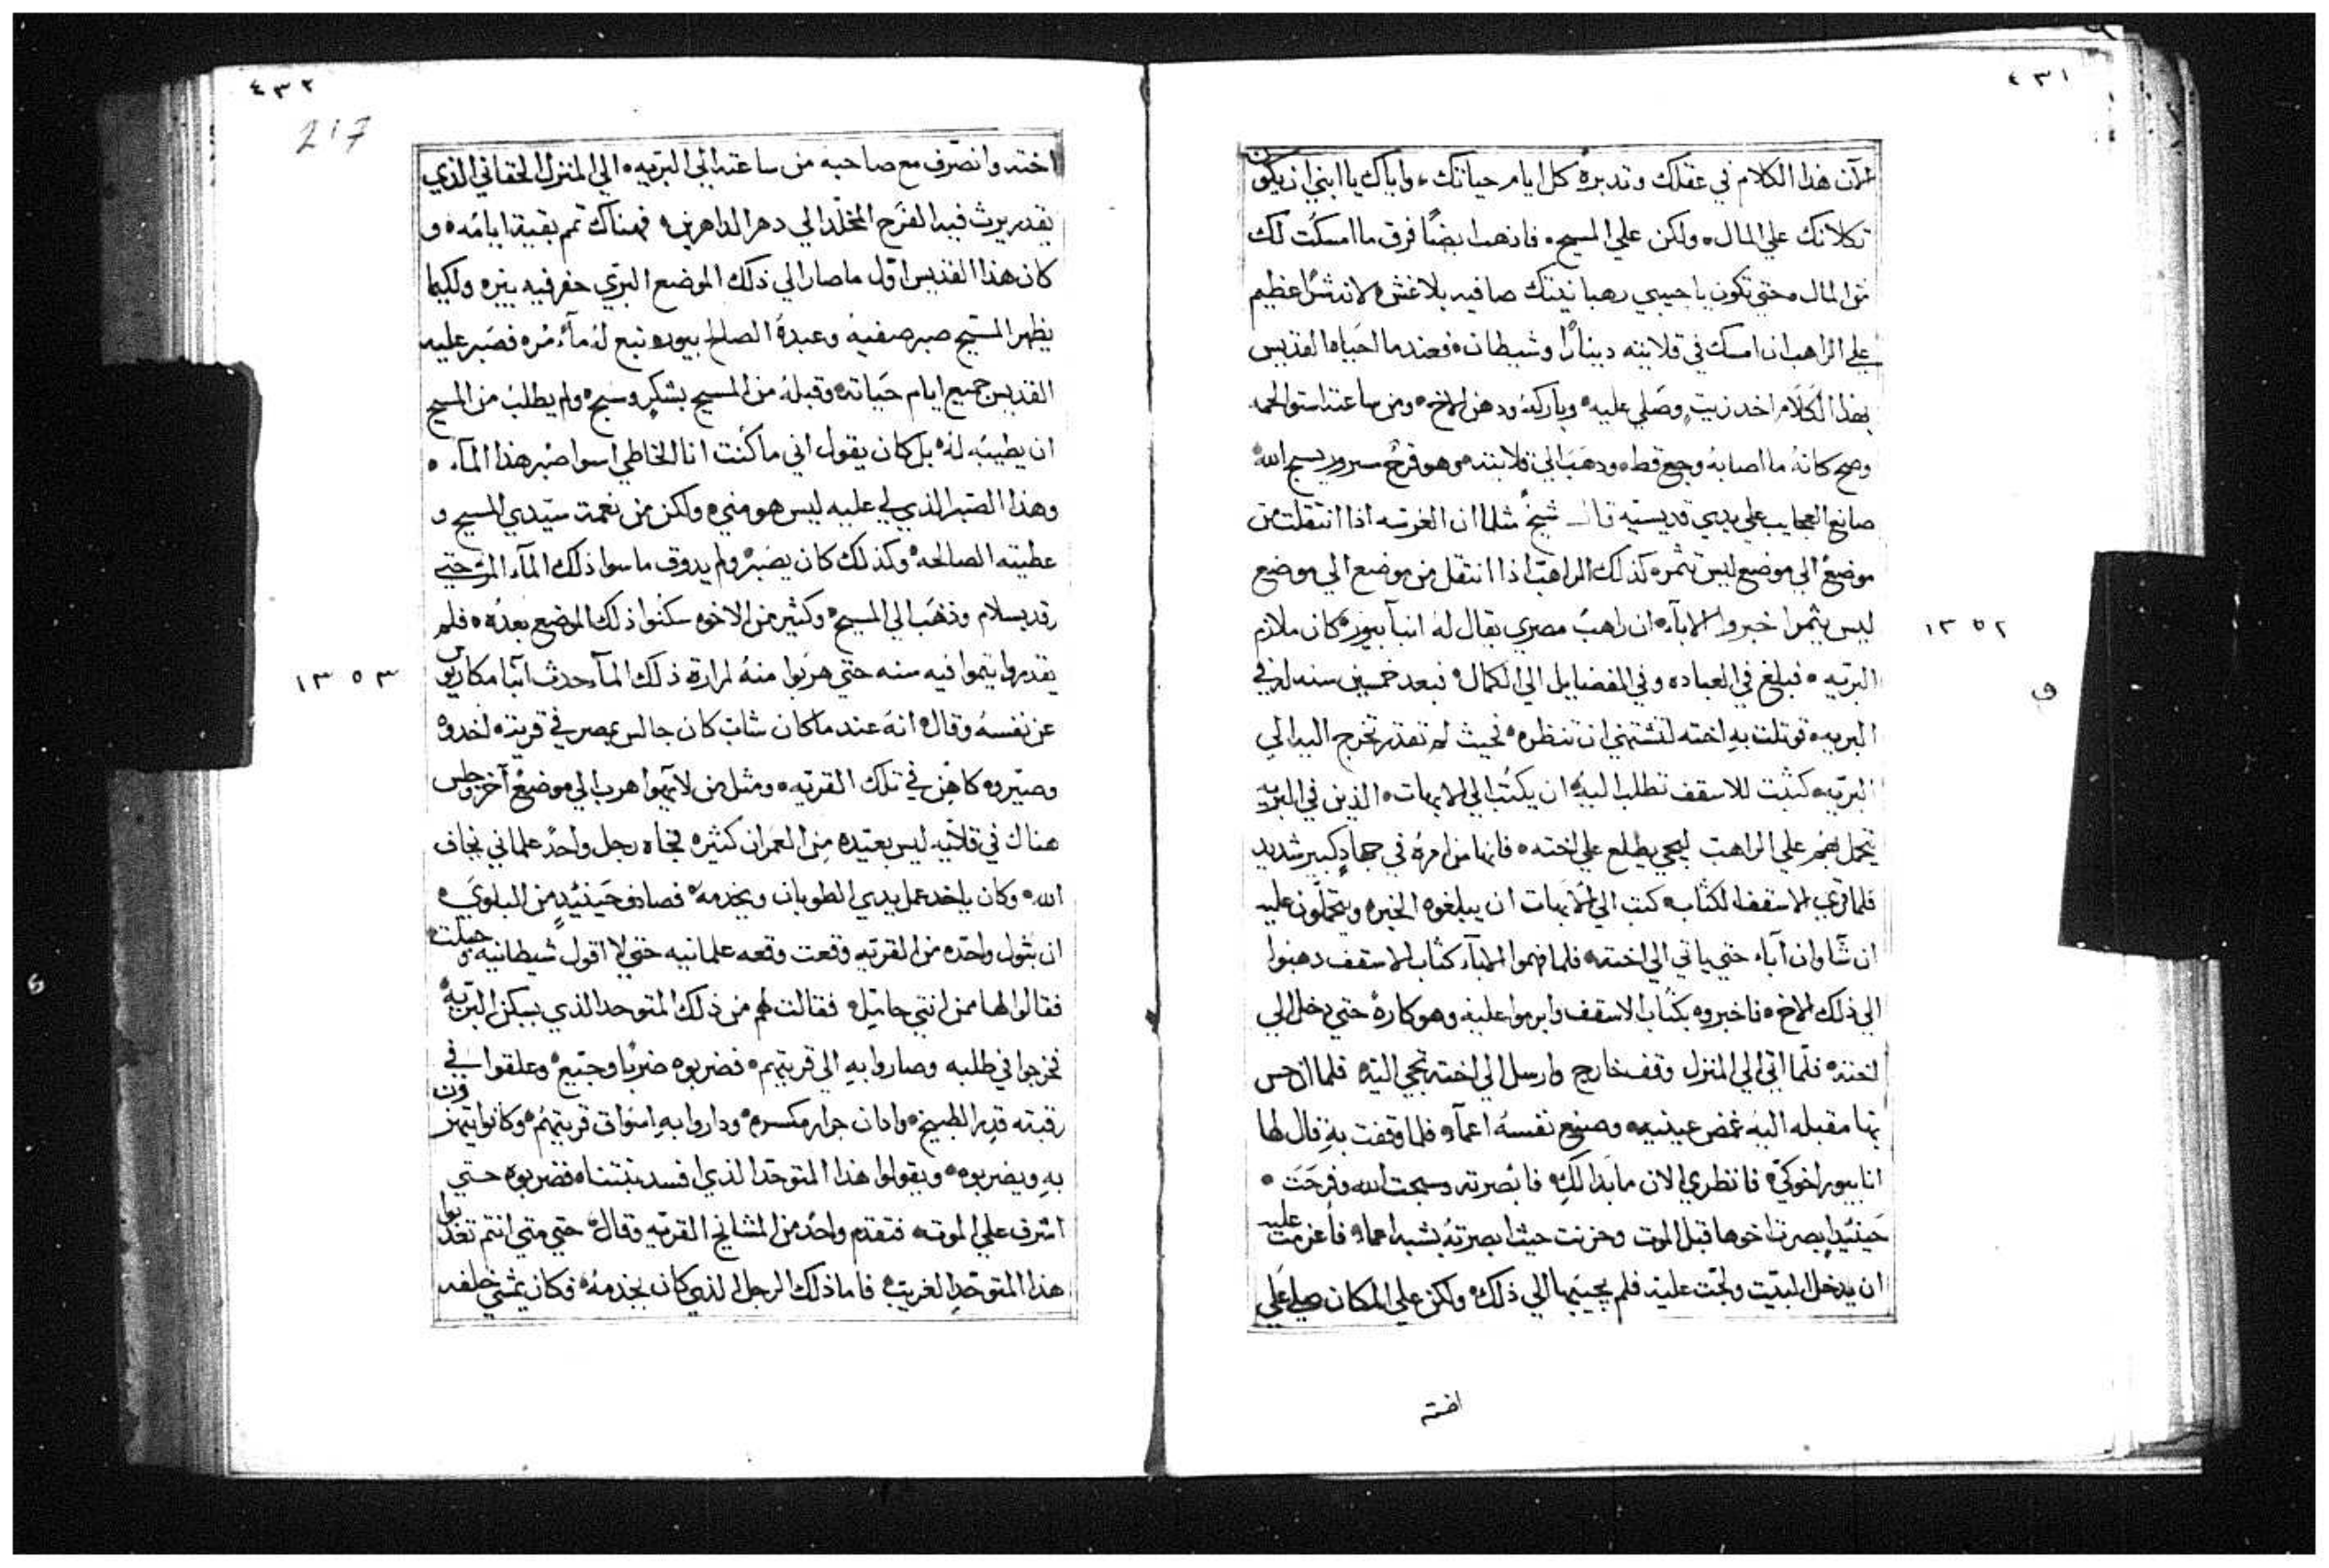 ٤٣١
الان هذا الكلام في عقلك وتدبره كل ايام حياتك، واياك يا ابني ان يكون
تكلانك علي المال. ولكن علي المسيح. فاذهب ايضًا فرق ما امسكت لك
من المال وحتي تكون يا حبيبي رهبانيتك صافيه بلا غش لانه شرًا عظيم
علي الراهب ان امسك في قلايته دينارًا وشيطان. فعندما القديس
بهذا الكلام اخد زيت وصلي عليه. وباركه ودهن الاخ. ومن ساعته استوا لحمه
وصح كانه ما اصابه وجع قط. ودهب الي قلايته وهو فرح مسرور يسبح الله
صانع العجايب علي يدي قديسيه قال شيخ مثلما ان الغرسه اذا انتقلت من
موضع الي موضع ليس تثمر. كذلك الراهب اذا انتقل من موضع الي موضع
ليس يثمر خبروا الابآء ان راهب مصري يقال له انبا بيور كان ملازم
١٣٥٢
البريه. فبلغ في العباده وفي الفضايل الي الكمال فبعد خمسين سنه له في
البريه. توتلت به اخته لتشتهي ان تنظره. فحيث لم تقدر تخرج اليه الي
البريه. كتبت للاسقف تطلب اليه ان يكتب الي الابهات. الذين في البريه
يتحمل بهم علي الراهب ليجي يطلع علي اخته. فانها من امره في جهاد كبير شديد
فلما قري الاسقف الكتاب. كتب الي الابهات ان يبلغوه الخبره ويتحملون عليه
ان شا وان آباء حتي ياتي الي اخته. فلما فهموا الابآء كتاب الاسقف دهبوا
الي ذلك الاخ. فاخبروه بكتاب الاسقف وابرموا عليه وهو كاره حتي دخل الي
اخته. فلما اتي الي المنزل وقف خارج وارسل الي اخته تجي اليه. فلما احس
بها مقبله اليه غمض عينيه. وصنع نفسه اعما. فلما وقفت به قال لها
انا بيور اخوكي. فانظري الان ما بدا لك. فابصرته وسبحت الله وفرحت.
حينيد ابصرت اخوها قبل الموت وحزنت حيث ابصرته بشبه اعما. فاعزمت عليه
ان يدخل البيت ولجت عليه. فلم يجيبها الي ذلك. ولكن علي المكان صلي علي
اخته
٤٣٢
217
اخته وانصرف مع صاحبه من ساعته الي البريه. الي المنزل الحقاني الذي
يقدر يرث فيه الفرح المخلد الي دهر الداهرين. فهناك تم بقية ايامه. و
كان هذا القديس اول ما صار الي ذلك الموضع البري حفر فيه بيره ولكيما
يظهر المسيح صبر صفيه وعبده الصالح بيور. نبع له مآء مُره فصبر عليه
القديس جميع ايام حياته. وقبله من المسيح بشكر وسبح. ولم يطلب من المسيح
ان يطيبه له. بل كان يقول اني ما كنت انا الخاطي اسوا صبر هذا المآء.
وهذا الصبر الذي لي عليه ليس هو مني. ولكن من نعمت سيدي المسيح و
عطيته الصالحه. وكذلك كان يصبر ولم يدوق ما سوا ذلك المآء المر حتي
رقد بسلام وذهب الي المسيح. وكثير من الاخوه سكنوا ذلك الموضع بعده. فلم
يقدروا يتموا فيه سنه حتي هربوا منه لمرارة ذلك المآء حدث انبا مكاريوس
١٣٥٣
عن نفسه وقال. انه عندما كان شاب كان جالس بمصر في قريته. اخدوه
وصيروه كاهن في تلك القريه. ومثل من لا هرب الي موضع آخر وجلس
هناك في قلايه ليس بعيده من العمران كثيره فجاه رجل واحد علماني يخاف
الله. وكان ياخد عمل يدي الطوبان ويخدمه. فصادف حينيد من البلوي.
ان بتول واحده من القريه وقعت وقعه علمانيه حتي لا اقول شيطانيه. وحبلت
فقالوا لها ممن انتي حامله. فقالت لهم من ذلك المتوحد الذي يسكن البريه.
فخرجوا في طلبه وصاروا به الي قريتهم. فضربوه ضربًا وجيع. وعلقوا في
رقبته قدر الطبيخ. وادان جرار مكسره. وداروا به اسواق قريتهم. وكانوا يتهزون
به ويضربوه. ويقولوا هذا المتوحد الذي افسد بنتنا. فضربوه حتي
اشرف علي الموت. فتقدم واحد من المشايخ القريه وقال. حتي متي انتم تعذبوا
هذا المتوحد الغريب. فاما ذلك الرجل الذي كان يخدمه. فكان يمشي خلفه